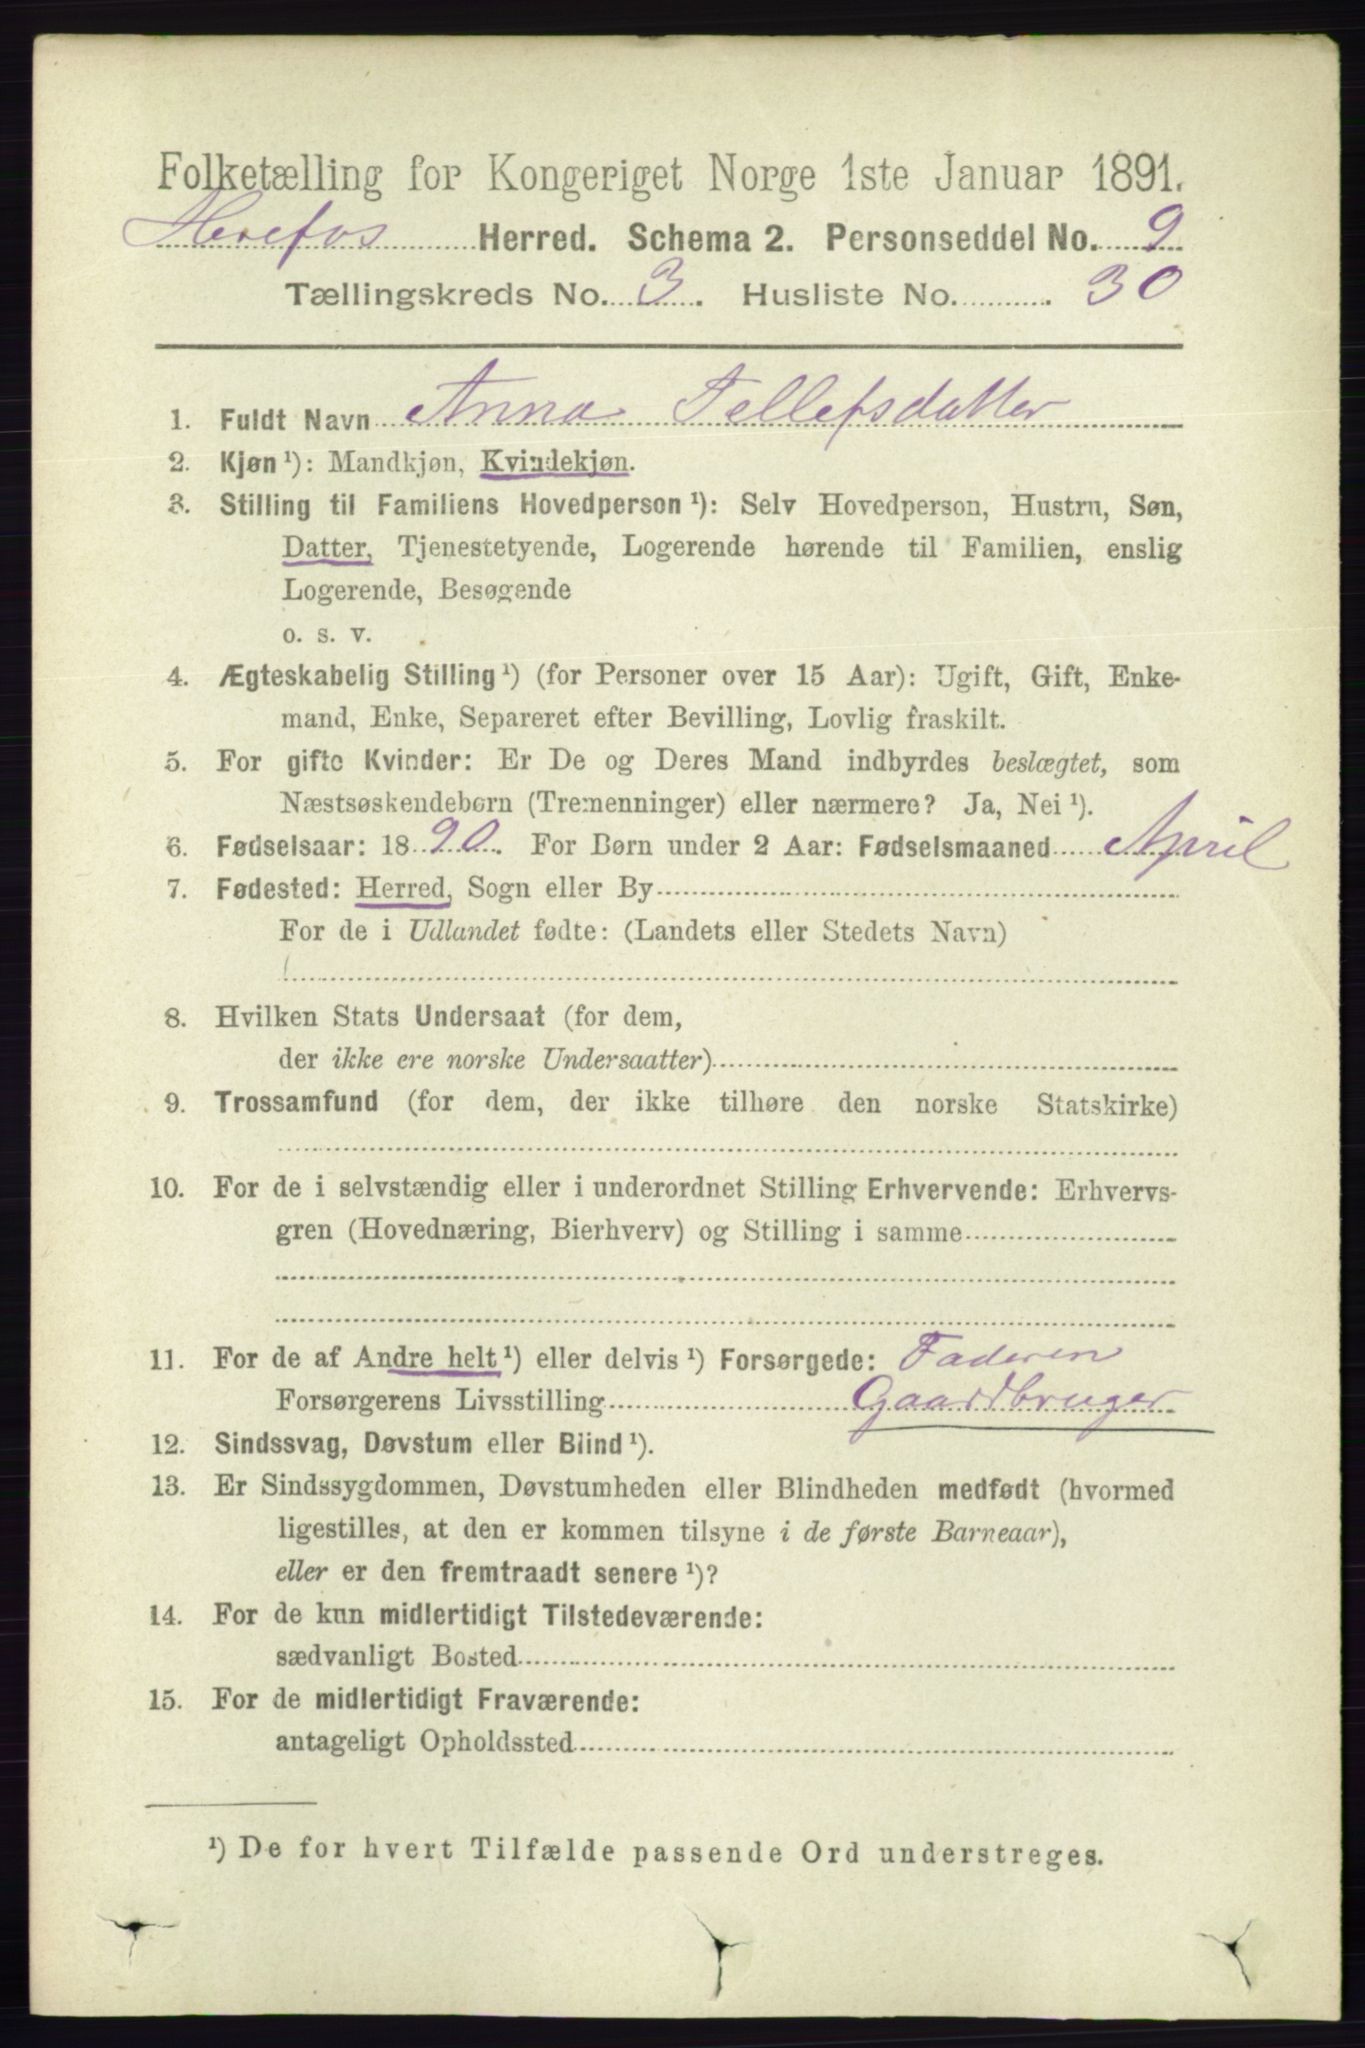 Folketælling for Kongeriget Norge 1ste Januar 1891.
Herefos Herred. Schema 2. Personseddel No. 9
Tællingskreds No. 3. Husliste No. 30
1. Fuldt Navn Anna Tellefsdatter
2. Kjøn ¹): Mandkjøn, Kvindekjøn.
3. Stilling til Familiens Hovedperson ¹): Selv Hovedperson, Hustru, Søn,
Datter, Tjenestetyende, Logerende hørende til Familien, enslig
Logerende, Besøgende
o. s. v.
4. Ægteskabelig Stilling ¹) (for Personer over 15 Aar): Ugift, Gift, Enke-
mand, Enke, Separeret efter Bevilling, Lovlig fraskilt.
5. For gifte Kvinder: Er De og Deres Mand indbyrdes beslægtet, som
Næstsøskendebørn (Tremenninger) eller nærmere? Ja, Nei ¹).
6. Fødselsaar: 1890. For Børn under 2 Aar: Fødselsmaaned April
7. Fødested: Herred, Sogn eller By
For de i Udlandet fødte: (Landets eller Stedets Navn)
8. Hvilken Stats Undersaat (for dem,
der ikke ere norske Undersaatter)
9. Trossamfund (for dem, der ikke tilhøre den norske Statskirke)
10. For de i selvstændig eller i underordnet Stilling Erhvervende: Erhvervs-
gren (Hovednæring, Bierhverv) og Stilling i samme
11. For de af Andre helt ¹) eller delvis ¹) Forsørgede: Faderen
Forsørgerens Livsstilling Gaardbruger
12. Sindssvag, Døvstum eller Blind ¹).
13. Er Sindssygdommen, Døvstumheden eller Blindheden medfødt (hvormed
ligestilles, at den er kommen tilsyne i de første Barneaar),
eller er den fremtraadt senere ¹)?
14. For de kun midlertidigt Tilstedeværende:
sædvanligt Bosted
15. For de midlertidigt Fraværende:
antageligt Opholdssted
¹) De for hvert Tilfælde passende Ord understreges.